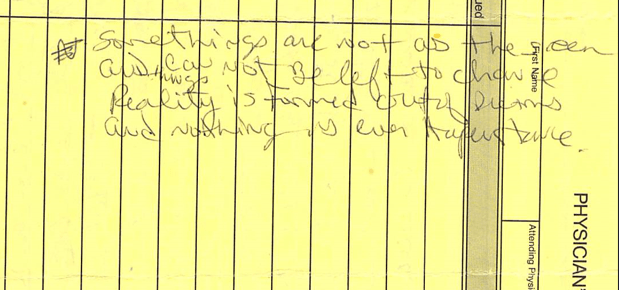 Somethings are not as the seen
and can not Be left to chance
things
Reality is formed out of Dreams
and nothing is ever
ued
First Name
PHYSICIAN'
Attending Physi